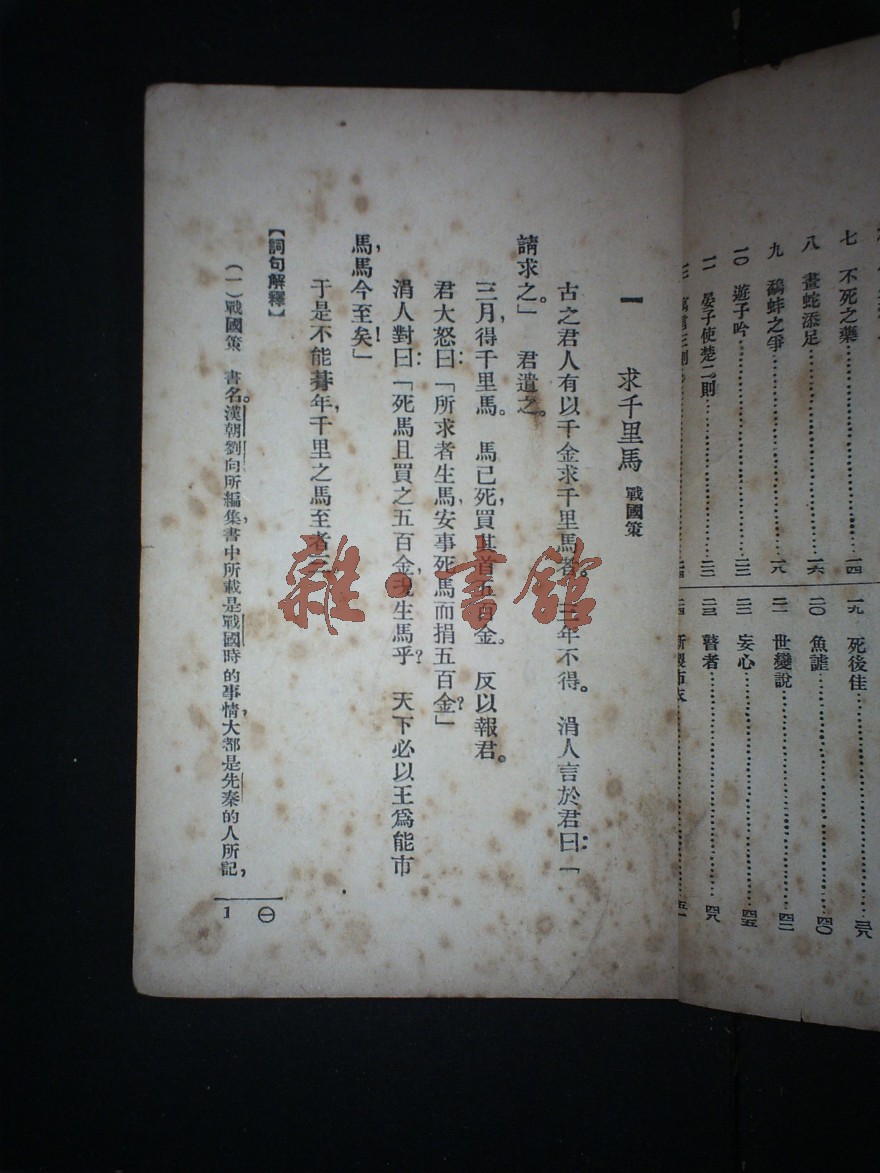 七 不死之藥……………一四
八 畫蛇添足……………一六
九 鷸蚌之爭……………一八
一〇 遊子吟……………
一一 晏子使楚二則……………
一九 死後佳……………三八
二〇 魚……………四〇
二一 世變說……………四二
二二 妄心……………四五
二三 瞽者……………四八
二四 新製布衣……………五一
一 求千里馬 戰國策
古之君人有以千金求千里馬者。三年不得。 涓人言於君曰:「
請求之。」 君遣之。
三月,得千里馬。 馬已死,買其首五百金。 反以報君。
君大怒曰:「所求者生馬,安事死馬而捐五百金?」
涓人對曰:「死馬且買之五百金,況生馬乎? 天下必以王爲能市
馬,馬今至矣!」
于是不能朞年,千里之馬至者三。
【詞句解釋】
(一)戰國策 書名。漢朝劉向所編集,書中所載是戰國時的事情,大都是先秦的人所記,
㊀
1
雜·書館